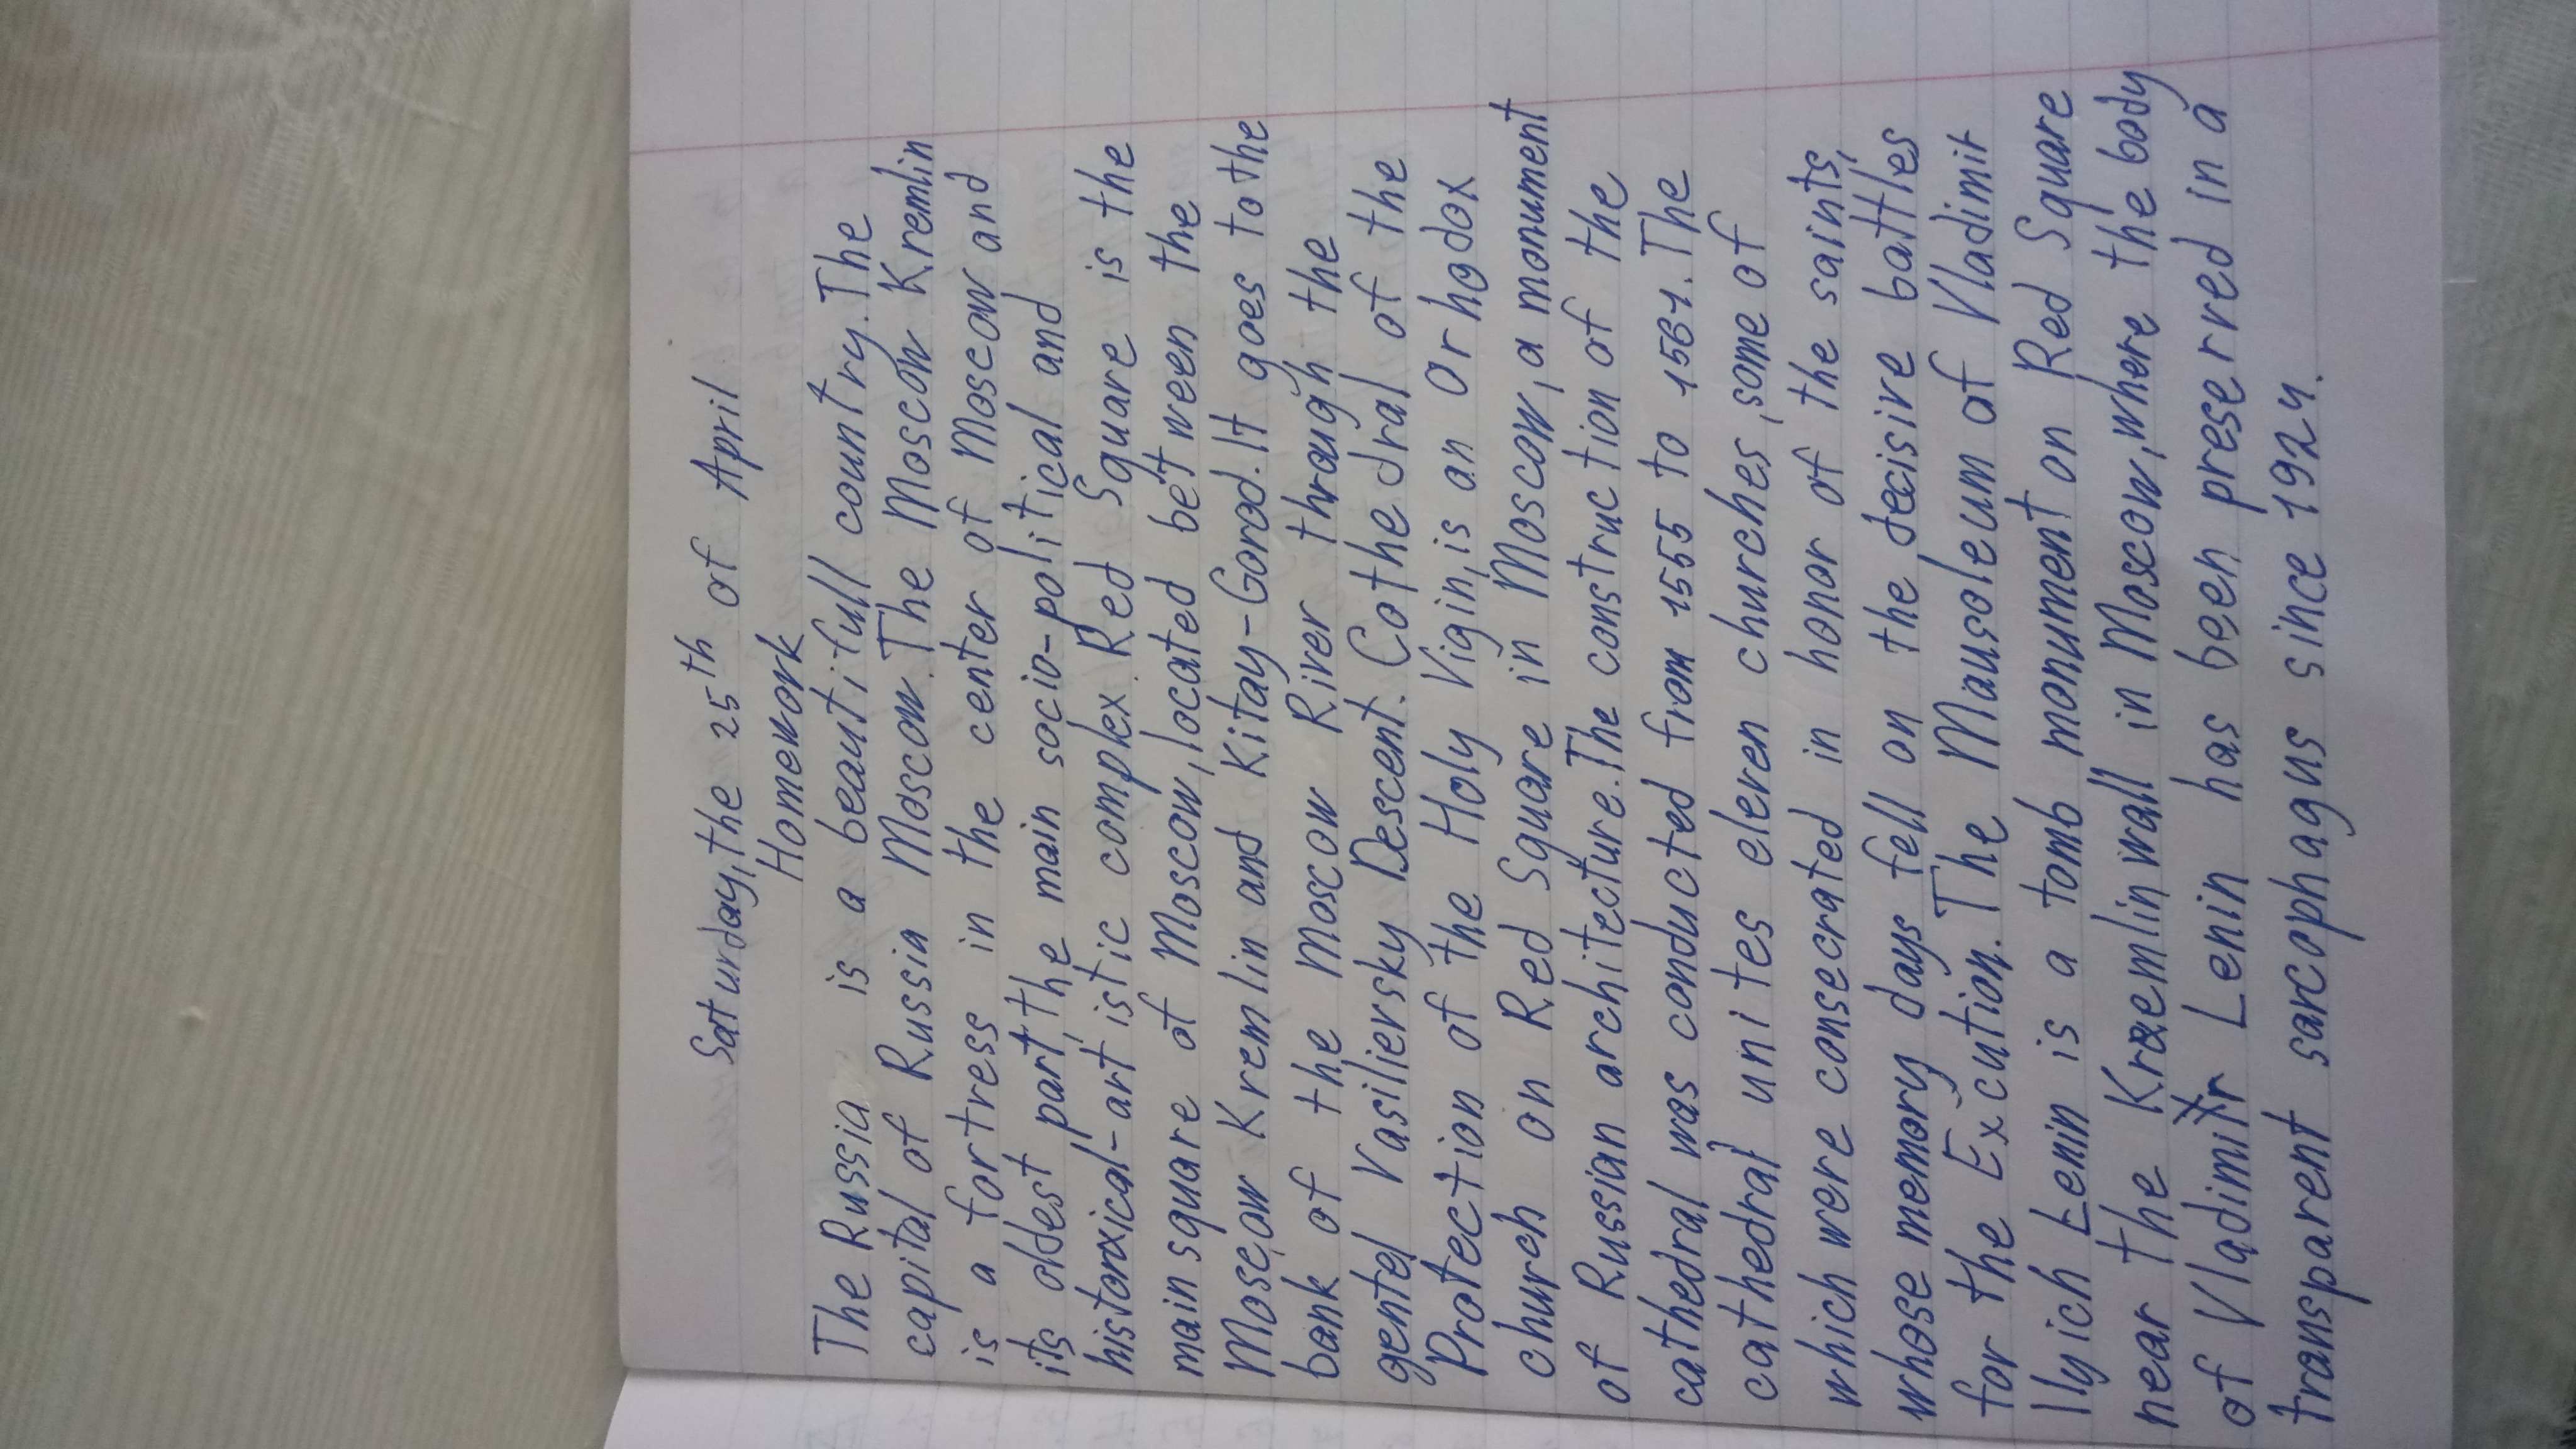 Saturday, the 25th of April
Homework
The Russia is a beautifull country. The
capital of Russia Moscow. The Moscow Kremlin
is a fortress in the center of Moscow and
its oldest part, the main socio-political and
historxical-artistic complex. Red Square is the
main square of Moscow, located between the
Moscow Kremlin and Kitay-Gorod. It goes to the
bank of the Moscow River through the
gentel Vasilievsky Descent. Cathedral of the
Protection of the Holy Vigin, is an Orhodox
church on Red Square in Moscow, a monument
of Russian architecture. The construction of the
cathedral was conducted from 1555 to 1561. The
cathedral unites eleven churches, some of
which were consecrated in honor of the saints,
whose memory days fell on the decisive battles
for the Excution. The Mausoleum of Vladimir
Ilyich Lenin is a tomb monument on Red Square
near the Kraemlin wall in Moscow, where the body
of Vladimir Lenin has been preserved in a
transparent sarcophagus since 1924.